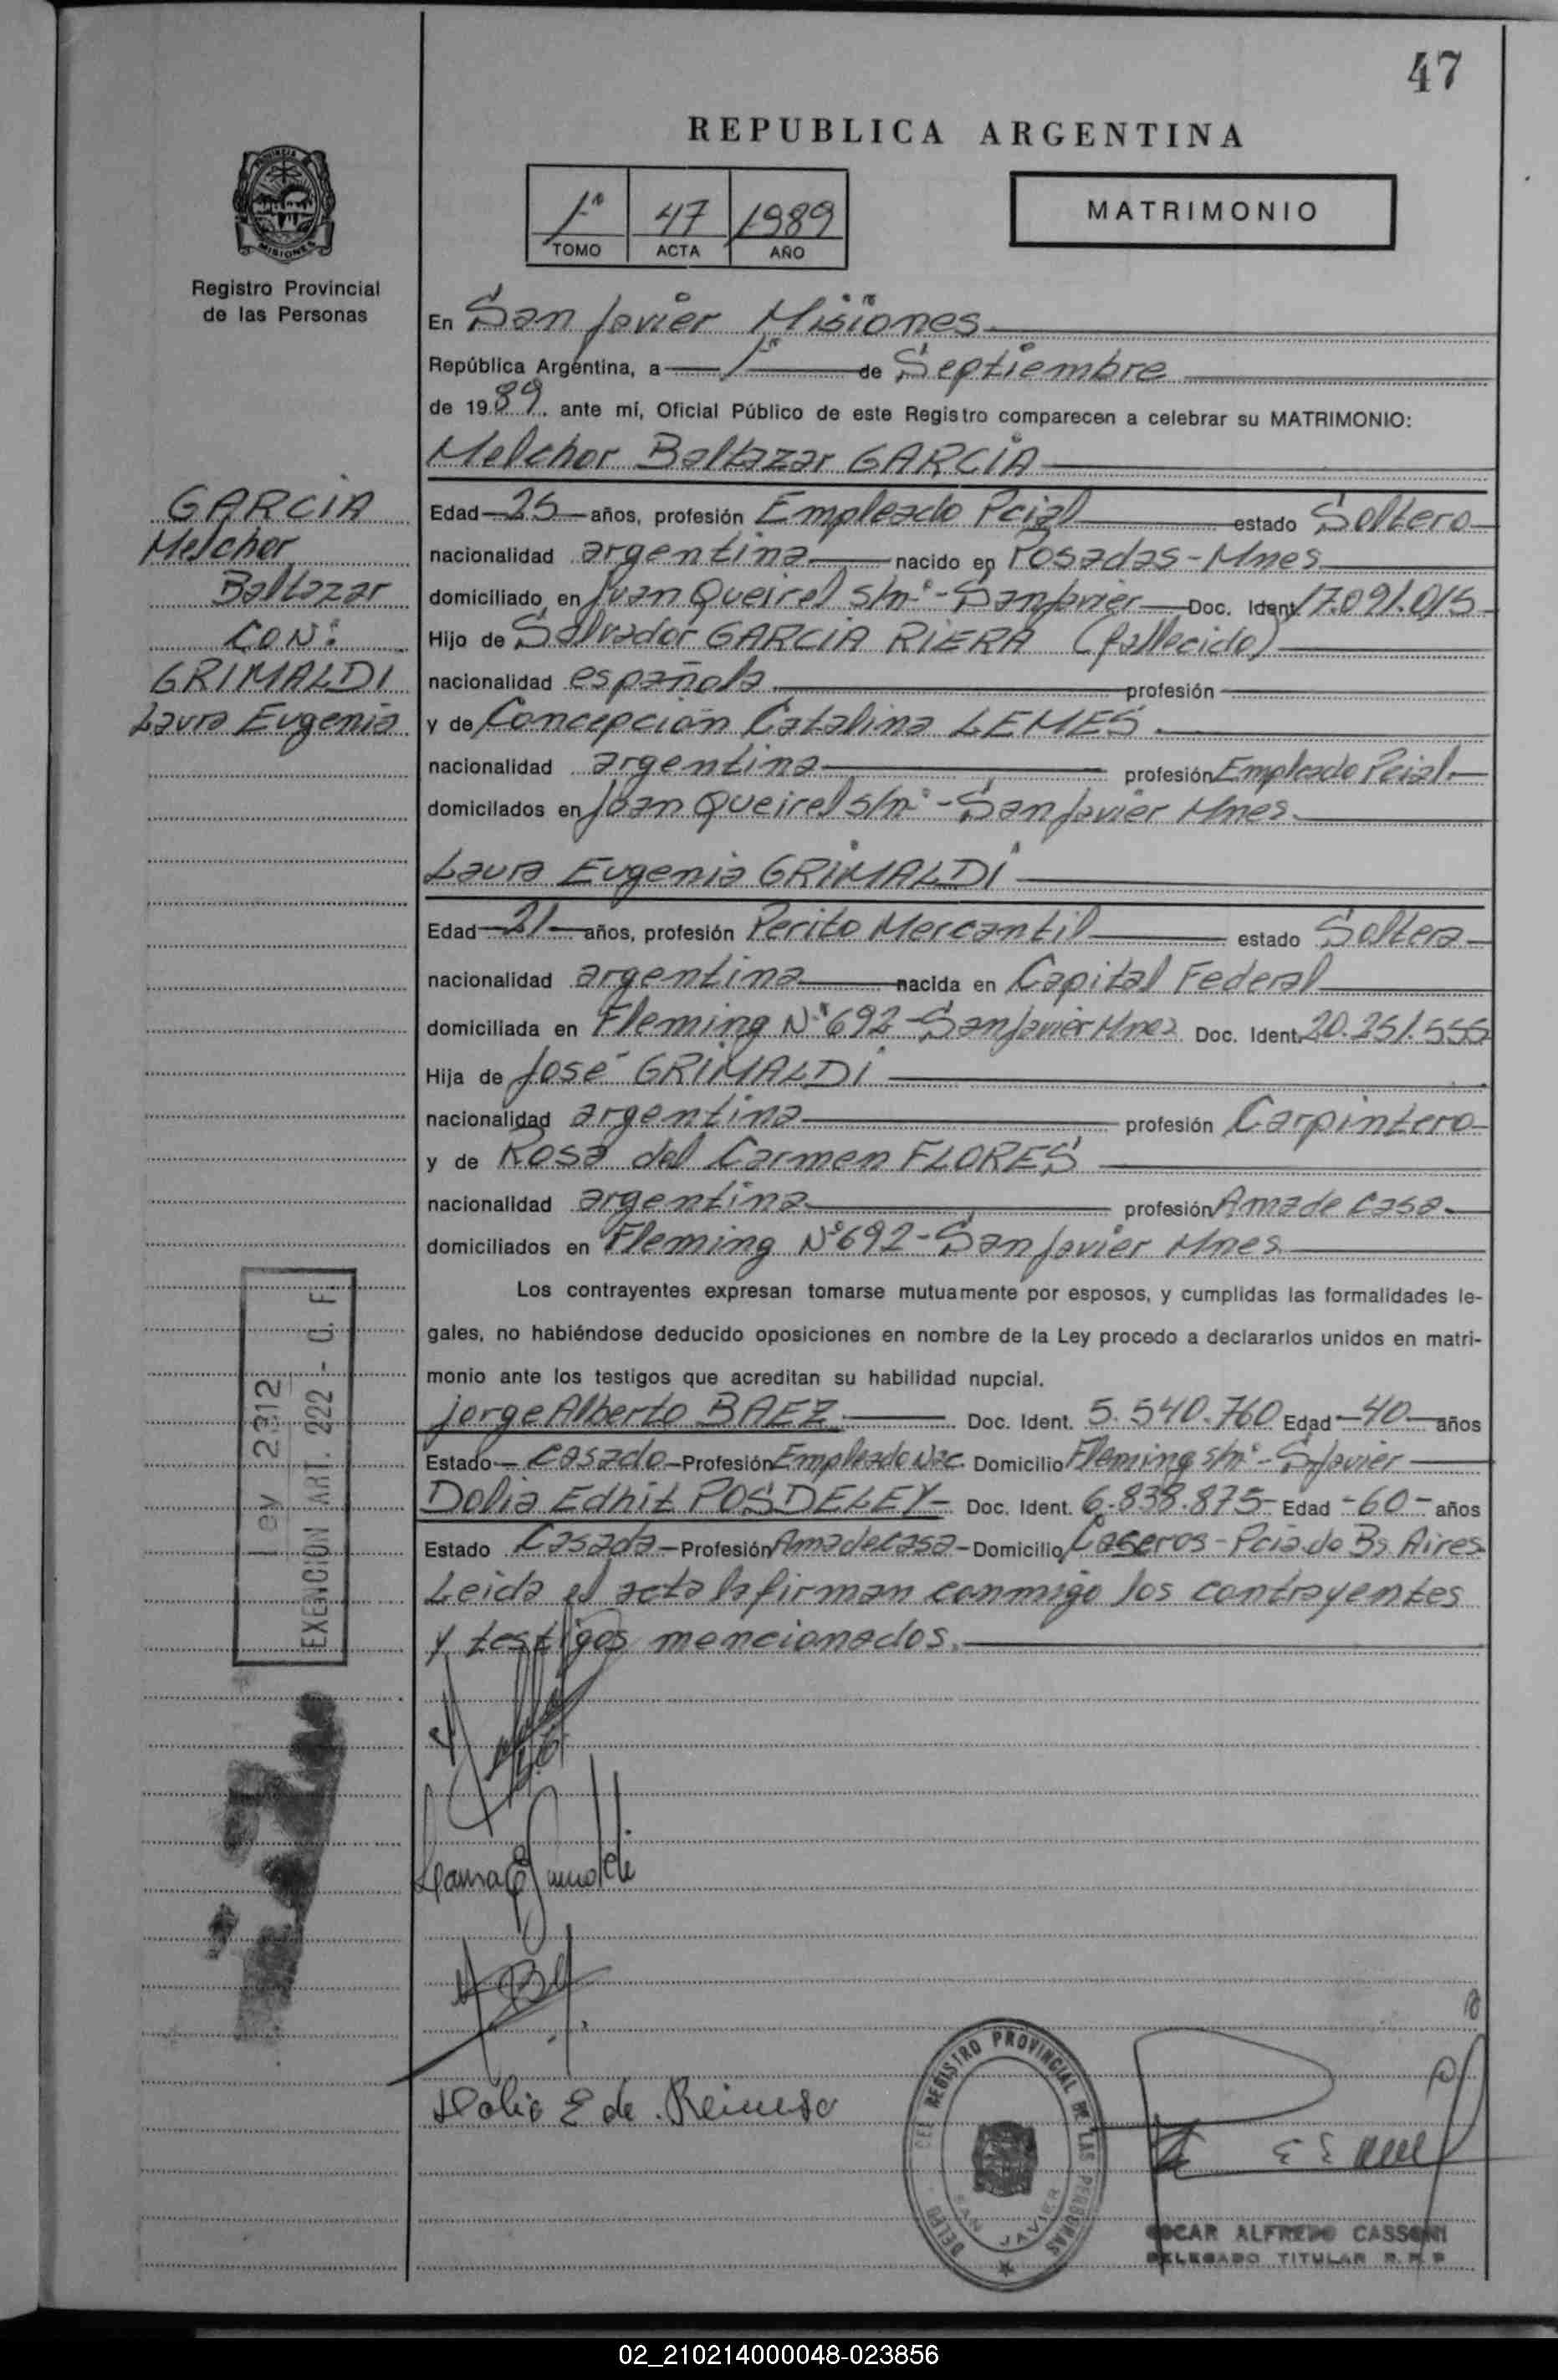 47
REPUBLICA ARGENTINA
1º 47 1989
TOMO ACTA AÑO
MATRIMONIO
PROVINCIA DE
MISIONES
Registro Provincial
de las Personas
En San Javier Misiones
República Argentina, a 1º de Septiembre
de 1989. ante mí, Oficial Público de este Registro comparecen a celebrar su MATRIMONIO:
Melchor Baltazar GARCIA
GARCIA
Melchor
Baltazar
CON:
GRIMALDI
Laura Eugenia
Edad 25 años, profesión Empleado Pcial estado Soltero
nacionalidad argentina nacido en Posadas - Mnes
domiciliado en Juan Queirel s/nº - San Javier Doc. Ident. 17.091.015
Hijo de Salvador GARCIA RIERA (fallecido)
nacionalidad española profesión
y de Concepción Catalina LEMES.
nacionalidad argentina profesión Empleado Pcial.
domicilados en Juan Queirel s/nº - San Javier Mnes.
Laura Eugenia GRIMALDI
Edad 21 años, profesión Perito Mercantil estado Soltera
nacionalidad argentina nacida en Capital Federal
domiciliada en Fleming Nº 692 - San Javier Mnes Doc. Ident. 20.251.555
Hija de José GRIMALDI
nacionalidad argentina profesión Carpintero
y de Rosa del Carmen FLORES
nacionalidad argentina profesión Ama de casa
domiciliados en Fleming Nº 692 - San Javier Mnes
Los contrayentes expresan tomarse mutuamente por esposos, y cumplidas las formalidades le-
gales, no habiéndose deducido oposiciones en nombre de la Ley procedo a declararlos unidos en matri-
monio ante los testigos que acreditan su habilidad nupcial.
Jorge Alberto BAEZ Doc. Ident. 5.540.760 Edad 40 años
Estado casado - Profesión Empleado Nac Domicilio Fleming s/nº - S. Javier
Dolia Edhit POSDELEY - Doc. Ident. 6.838.875 - Edad - 60 - años
Estado Casada - Profesión Ama de casa - Domicilio Caseros - Pcia de Bs Aires
Leida el acta la firman conmigo los contrayentes
y testigos mencionados.
Ley 2312
EXENCION ART. 222 - C. F.
Laura E Grimaldi
Dolia E de Reinoso
DELEG. DEL REGISTRO PROVINCIAL DE LAS PERSONAS
SAN JAVIER
OSCAR ALFREDO CASSONI
DELEGADO TITULAR R. P. P
02_210214000048-023856